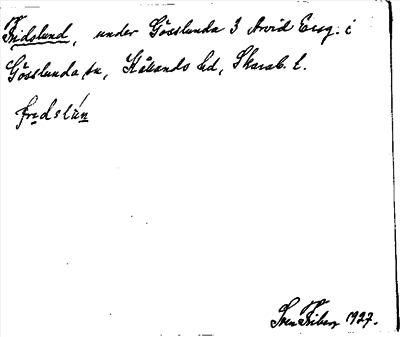 Fridslund, under Gösslunda 3 Arvid Ersg. i
Gösslunda sn, Kållands hd, Skarab. l.
fredslún
Sven Friberg 1927.